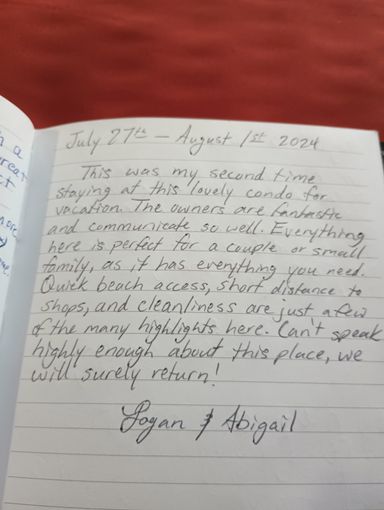 n a
reat
ct
more
July 27th — August 1st 2024
This was my second time
staying at this lovely condo for
vacation. The owners are fantastic
and communicate so well. Everything
here is perfect for a couple or small
family, as it has everything you need.
Quick beach access, short distance to
shops, and cleanliness are just a few
of the many highlights here. Can't speak
highly enough about this place, we
will surely return!
Logan & Abigail